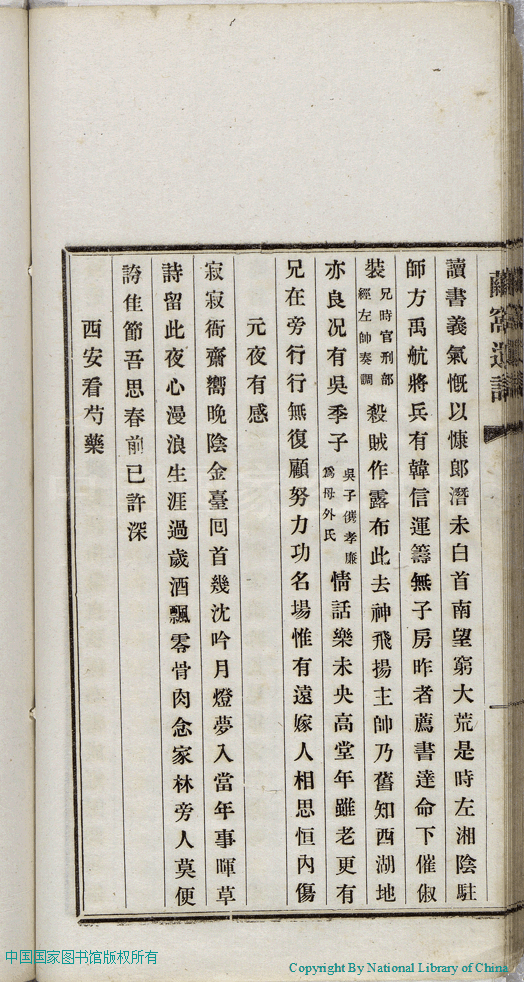 蘭窩遺詩
讀書義氣慨以慷郎潛未白首南望窮大荒是時左湘陰駐
師方禹航將兵有韓信運籌無子房昨者薦書達命下催俶
裝兄時官刑部經左帥奏調殺賊作露布此去神飛揚主帥乃舊知西湖地
亦良况有吳季子吳子儁孝廉爲母外氏情話樂未央高堂年雖老更有
兄在旁行行無復顧努力功名場惟有遠嫁人相思恒內傷
元夜有感
寂寂衙齋嚮晚陰金臺回首幾沈吟月燈夢入當年事暉草
詩留此夜心漫浪生涯過歲酒飄零骨肉念家林旁人莫便
誇佳節吾思春前已許深
西安看芍藥
中国国家图书馆版权所有
Copyright By National Library of China